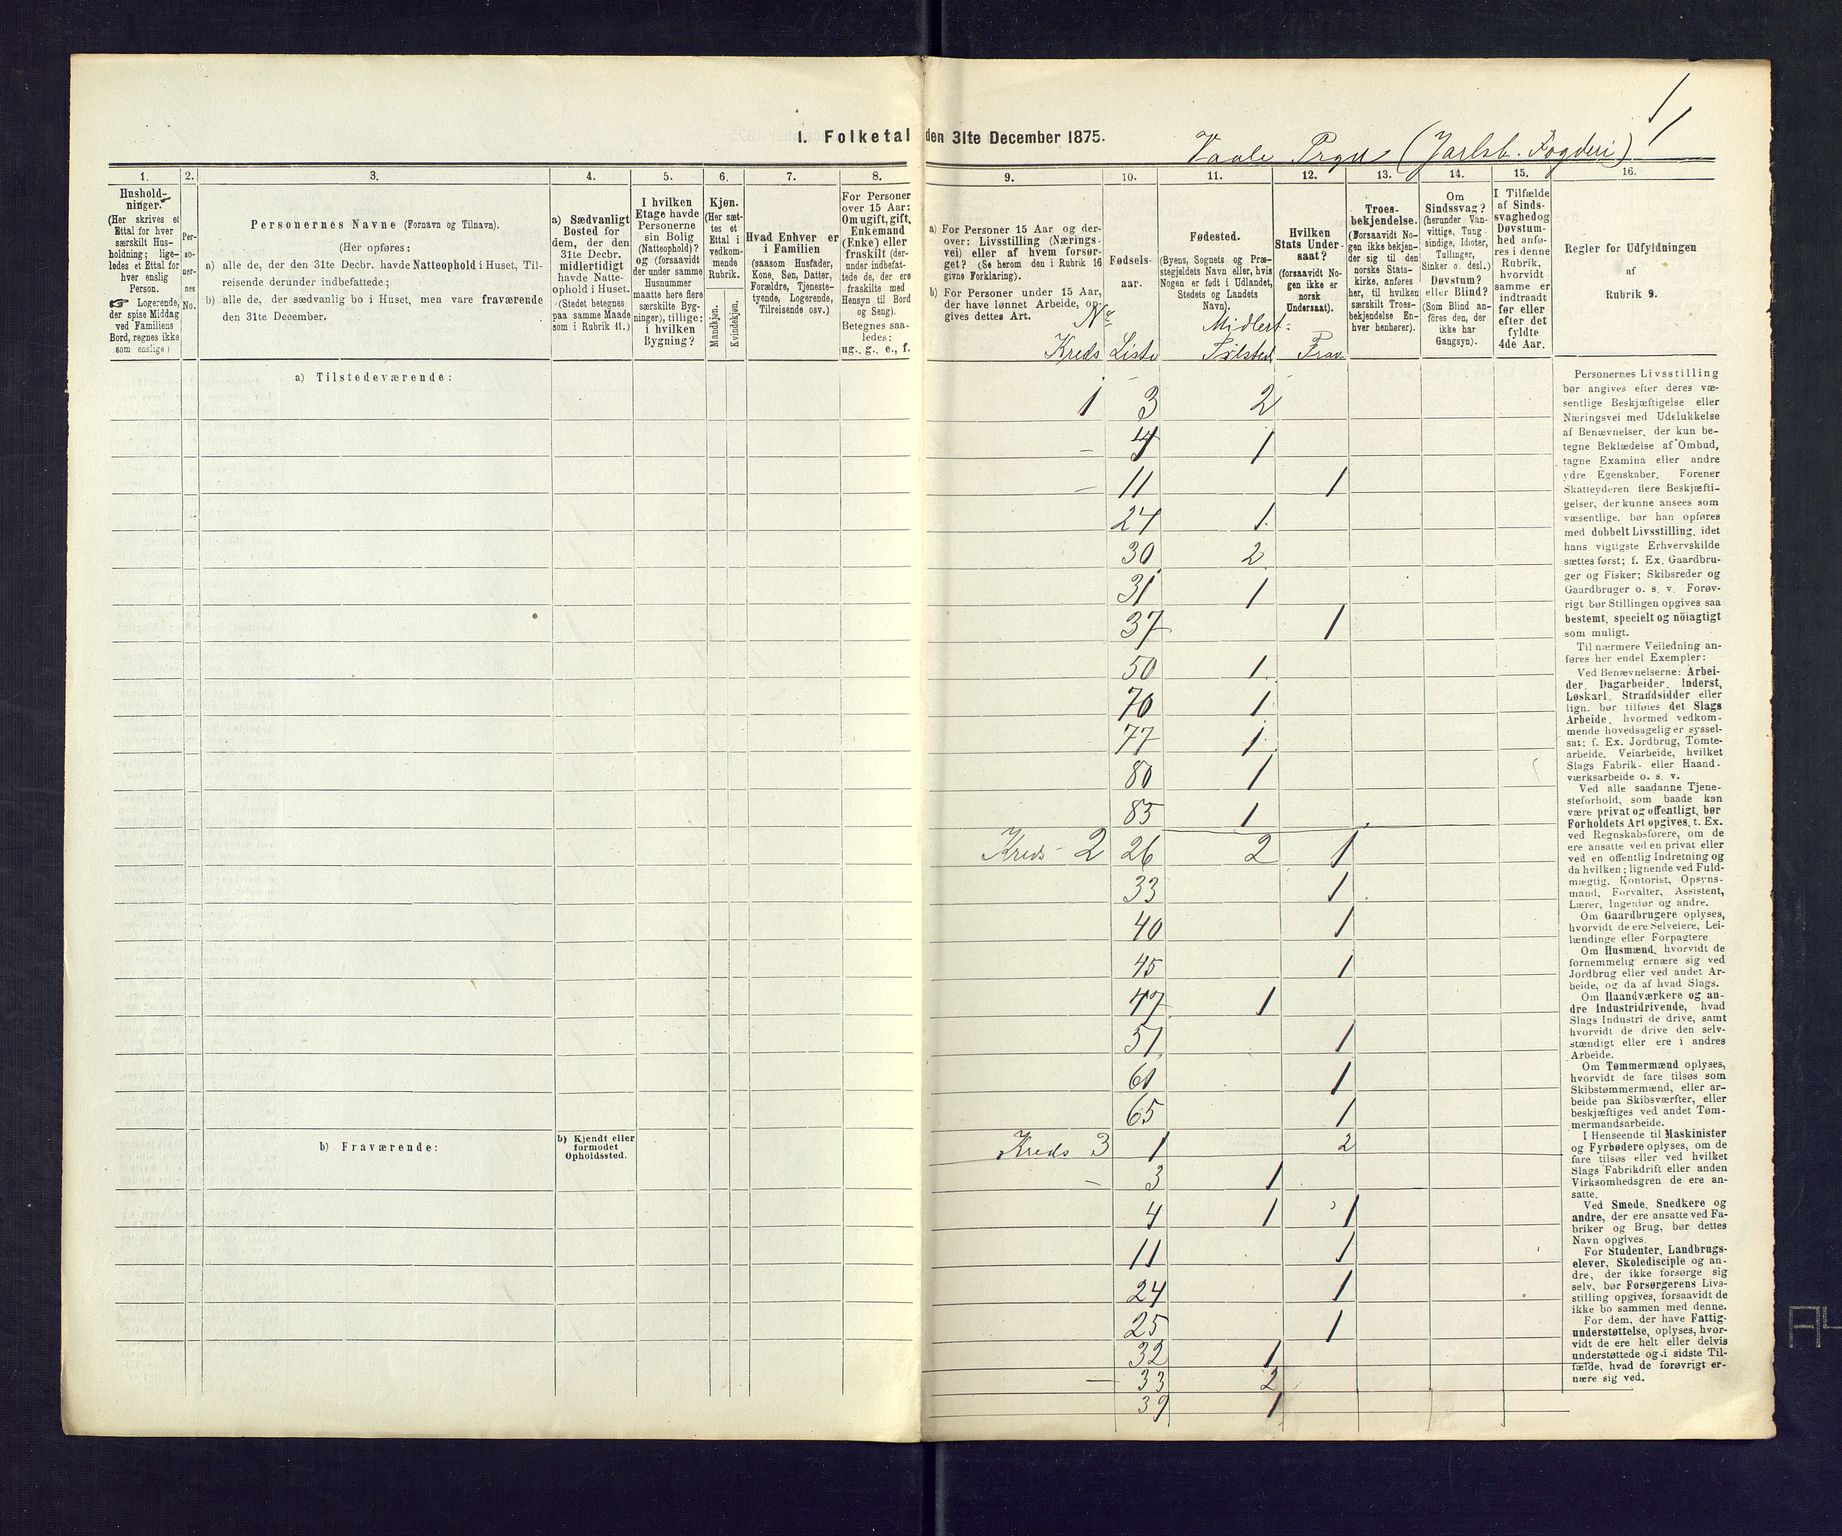 1
1. Folketal den 31te December 1875.
Vaale Prgd (Jarlsb. Fogderi) 1
1. 2. 3. 4. 5. 6. 7. 8. 9. 10. 11. 12. 13. 14. 15. 16.
Hushold-
ninger.
(Her skrives et
Ettal for hver
særskilt Hus-
holdning; lige-
ledes et Ettal for
hver enslig
Person.
☞ Logerende,
der spise Middag
ved Familiens
Bord, regnes ikke
som enslige)
Per-
so-
ner-
nes
No.
Personernes Navne (Fornavn og Tilnavn).
(Her opføres:
a) alle de, der den 31te Decbr. havde Natteophold i Huset, Til-
reisende derunder indbefattede;
b) alle de, der sædvanlig bo i Huset, men vare fraværende
den 31te December.
a) Sædvanligt
Bosted for
dem, der den
31te Decbr.
midlertidigt
havde Natte-
ophold i Huset.
(Stedet betegnes
paa samme Maade
som i Rubrik 11.)
I hvilken
Etage havde
Personerne
sin Bolig
(Natteophold)?
og (forsaavidt
der under samme
Husnummer
maatte høre flere
særskilte Byg-
ninger), tillige:
i hvilken
Bygning?
Kjøn.
(Her sæt-
tes et
Ettal i
vedkom-
mende
Rubrik.
Mandkjøn.
Kvindekjøn.
Hvad Enhver er
i Familien
(saasom Husfader,
Kone, Søn, Datter,
Forældre, Tjeneste-
tyende, Logerende,
Tilreisende osv.)
For Personer
over 15 Aar:
Om ugift, gift,
Enkemand
(Enke) eller
fraskilt (der-
under indbefat-
tede de, der ere
fraskilte med
Hensyn til Bord
og Seng).
Betegnes saa-
ledes:
ug., g., e., f.
a) For Personer 15 Aar og der-
over: Livsstilling (Nærings-
vei) eller af hvem forsør-
get? (Se herom den i Rubrik 16
givne Forklaring).
b) For Personer under 15 Aar,
der have lønnet Arbeide, op-
gives dettes Art.
Fødsels-
aar.
Fødested.
(Byens, Sognets og Præ-
stegjeldets Navn eller, hvis
Nogen er født i Udlandet,
Stedets og Landets
Navn).
Hvilken
Stats Under-
saat?
(forsaavidt No-
gen ikke er
norsk
Undersaat).
Troes-
bekjendelse.
(Forsaavidt No-
gen ikke bekjen-
der sig til den
norske Stats-
kirke, anføres
her, til hvilken
særskilt Troes-
bekjendelse En-
hver henhører).
Om
Sindssvag?
(herunder Van-
vittige, Tung
sindige, Idioter,
Tullinger,
Sinker o. desl.)
Døvstum?
eller Blind?
(Som Blind an-
føres den, der
ikke har
Gangsyn).
I Tilfælde
af Sinds-
svaghed og
Døvstum-
hed anfø-
res i denne
Rubrik,
hvorvidt
samme er
indtraadt
før eller
efter det
fyldte
4de Aar.
Regler for Udfyldningen
af
Rubrik 9.
No Midlert:
Kreds Liste Tilsted Frav
a) Tilstedeværende:
1 3 2
— 4 1
— 11 1
24 1
30 2
31 1
37 1
50 1
70 1
77 1
80 1
85 1
Kreds 2 26 2 1
33 1
40 1
45 1
47 1
51 1
61 1
65 1
b) Fraværende:
b) Kjendt eller
formodet
Opholdssted.
Kreds 3 1 2
— 3 1
4 1 1
11 1
24 1
25 1
32 1
— 33 2
39 1
Personernes Livsstilling
bør angives efter deres væ-
sentlige Beskjæftigelse eller
Næringsvei med Udelukkelse
af Benævnelser, der kun be-
tegne Beklædelse af Ombud,
tagne Examina eller andre
ydre Egenskaber. Forener
Skatteyderen flere Beskjæfti-
gelser, der kunne ansees som
væsentlige, bør han opføres
med dobbelt Livsstilling, idet
hans vigtigste Erhvervskilde
sættes først; f. Ex. Gaardbru-
ger og Fisker; Skibsreder og
Gaardbruger o. s. v. Forøv-
rigt bør Stillingen opgives saa
bestemt, specielt og nöiagtigt
som muligt.
Til nærmere Veiledning an-
føres her endel Exempler:
Ved Benævnelserne: Arbei-
der, Dagarbeider, Inderst,
Løskarl, Strandsidder eller
lign. bør tilføies det Slags
Arbeide, hvormed vedkom-
mende hovedsagelig er syssel-
sat; f. Ex. Jordbrug, Tomte-
arbeide, Veiarbeide, hvilket
Slags Fabrik- eller Haand-
værksarbeide o. s. v.
Ved alle saadanne Tjene-
steforhold, som baade kan
være privat og offentligt, bør
Forholdets Art opgives, t. Ex.
ved Regnskabsførere, om de
ere ansatte ved en privat eller
ved en offentlig Indretning og
da hvilken; lignende ved Fuld-
mægtig, Kontorist, Opsyns-
mand, Forvalter, Assistent,
Lærer, Ingeniør og andre.
Om Gaardbrugere oplyses,
hvorvidt de ere Selveiere, Lei-
lændinge eller Forpagtere
Om Husmænd, hvorvidt de
fornemmelig ernære sig ved
Jordbrug eller ved andet Ar-
beide, og da af hvad Slags.
Om Haandværkere og an-
dre Industridrivende, hvad
Slags Industri de drive, samt
hvorvidt de drive den selv-
stændigt eller ere i andres
Arbeide.
Om Tømmermænd oplyses,
hvorvidt de fare tilsøs som
Skibstømmermænd, eller ar-
beide paa Skibsværfter, eller
beskjæftiges ved andet Tøm-
mermandsarbeide.
I Henseende til Maskinister
og Fyrbødere oplyses, om de
fare tilsøs eller ved hvilket
Slags Fabrikdrift eller anden
Virksomhedsgren de ere an-
satte.
Ved Smede, Snedkere og
andre, der ere ansatte ved Fa-
briker og Brug, bør dettes
Navn opgives.
For Studenter, Landbrugs-
elever, Skoledisciple og an-
dre, der ikke forsørge sig
selv, bør Forsørgerens Livs-
stilling opgives, forsaavidt de
ikke bo sammen med denne.
For dem, der have Fattig-
understøttelse, oplyses, hvor-
vidt de ere helt eller delvis
understøttede og i sidste Til-
fælde, hvad de forøvrigt er-
nære sig ved.
A4